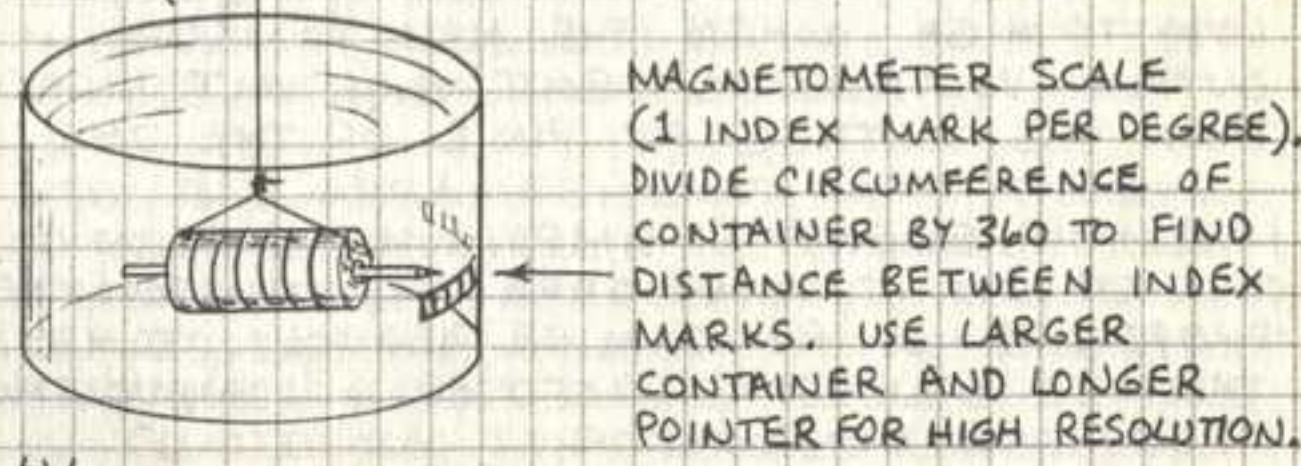 MAGNETOMETER SCALE
(1 INDEX MARK PER DEGREE).
DIVIDE CIRCUMFERENCE OF
CONTAINER BY 360 TO FIND
DISTANCE BETWEEN INDEX
MARKS. USE LARGER
CONTAINER AND LONGER
POINTER FOR HIGH RESOLUTION.